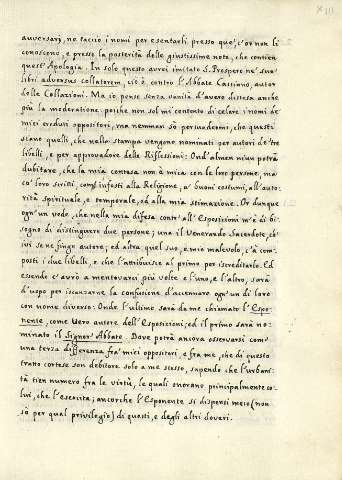 avversarj, ne taccio i nomi per esentarli presso que', c'or non li
conoscono, e presso la posterità delle giustissime note, che contien
quest'Apologia. In solo questo avrei imitato S. Prospero ne' suoi
libri adversus collatorem, ciò è contro l'Abbate Cassiano, autor
delle Collazioni. Ma io penso senza vanità d'avere distesa anche
più la moderazione: poiché non sol mi contento di celare i nomi de'
miei creduti oppositori, ma nemmen sò persuadermi, che questi
siano quelli, che nella stampa vengono nominati per autori de' tre
libelli, e per approvadore delle Riflessioni: Ond'almen niun potrà
dubitare, che la mia contesa non è mica con le loro persone, ma
co' loro scritti, così infesti alla Religione, a' buoni costumi, all'auto-
rità spirituale, e temporale, ed alla mia estimazione. Or dunque
ogn'un vede, che nella mia difesa contr'all'Esposizioni m'è di bi-
sogno di distinguere due persone; una il Venerando Sacerdote, ch'
ivi se ne finge autore; ed altra quel suo, e mio malevolo, c'à com-
posti i due libelli, e che l'attribuisce al primo per iscreditarlo. Ed
essendo c'avrò a mentovarsi più volte e l'uno, e l'altro, sarà
d'uopo per iscansarne la confusione d'accennare ogn'un di loro
con nome diverso: Onde l'ultimo sarà da me chiamato l'Espo-
nente, come vero autore dell'Esposizioni, ed il primo sarà no-
minato il Signor Abbate. Dove potrà ancora osservarsi com'
una terza differenza fra' miei oppositori e fra me, che di questo
tratto cortese son debitore solo a me stesso, sapendo che l'urbani-
tà tien numero fra le virtù, le quali onorano principalmente co-
lui, che l'esercita; ancorche l'Esponente si dispensi meco (non
sò per qual privilegio) di questi, e degli altri doveri.